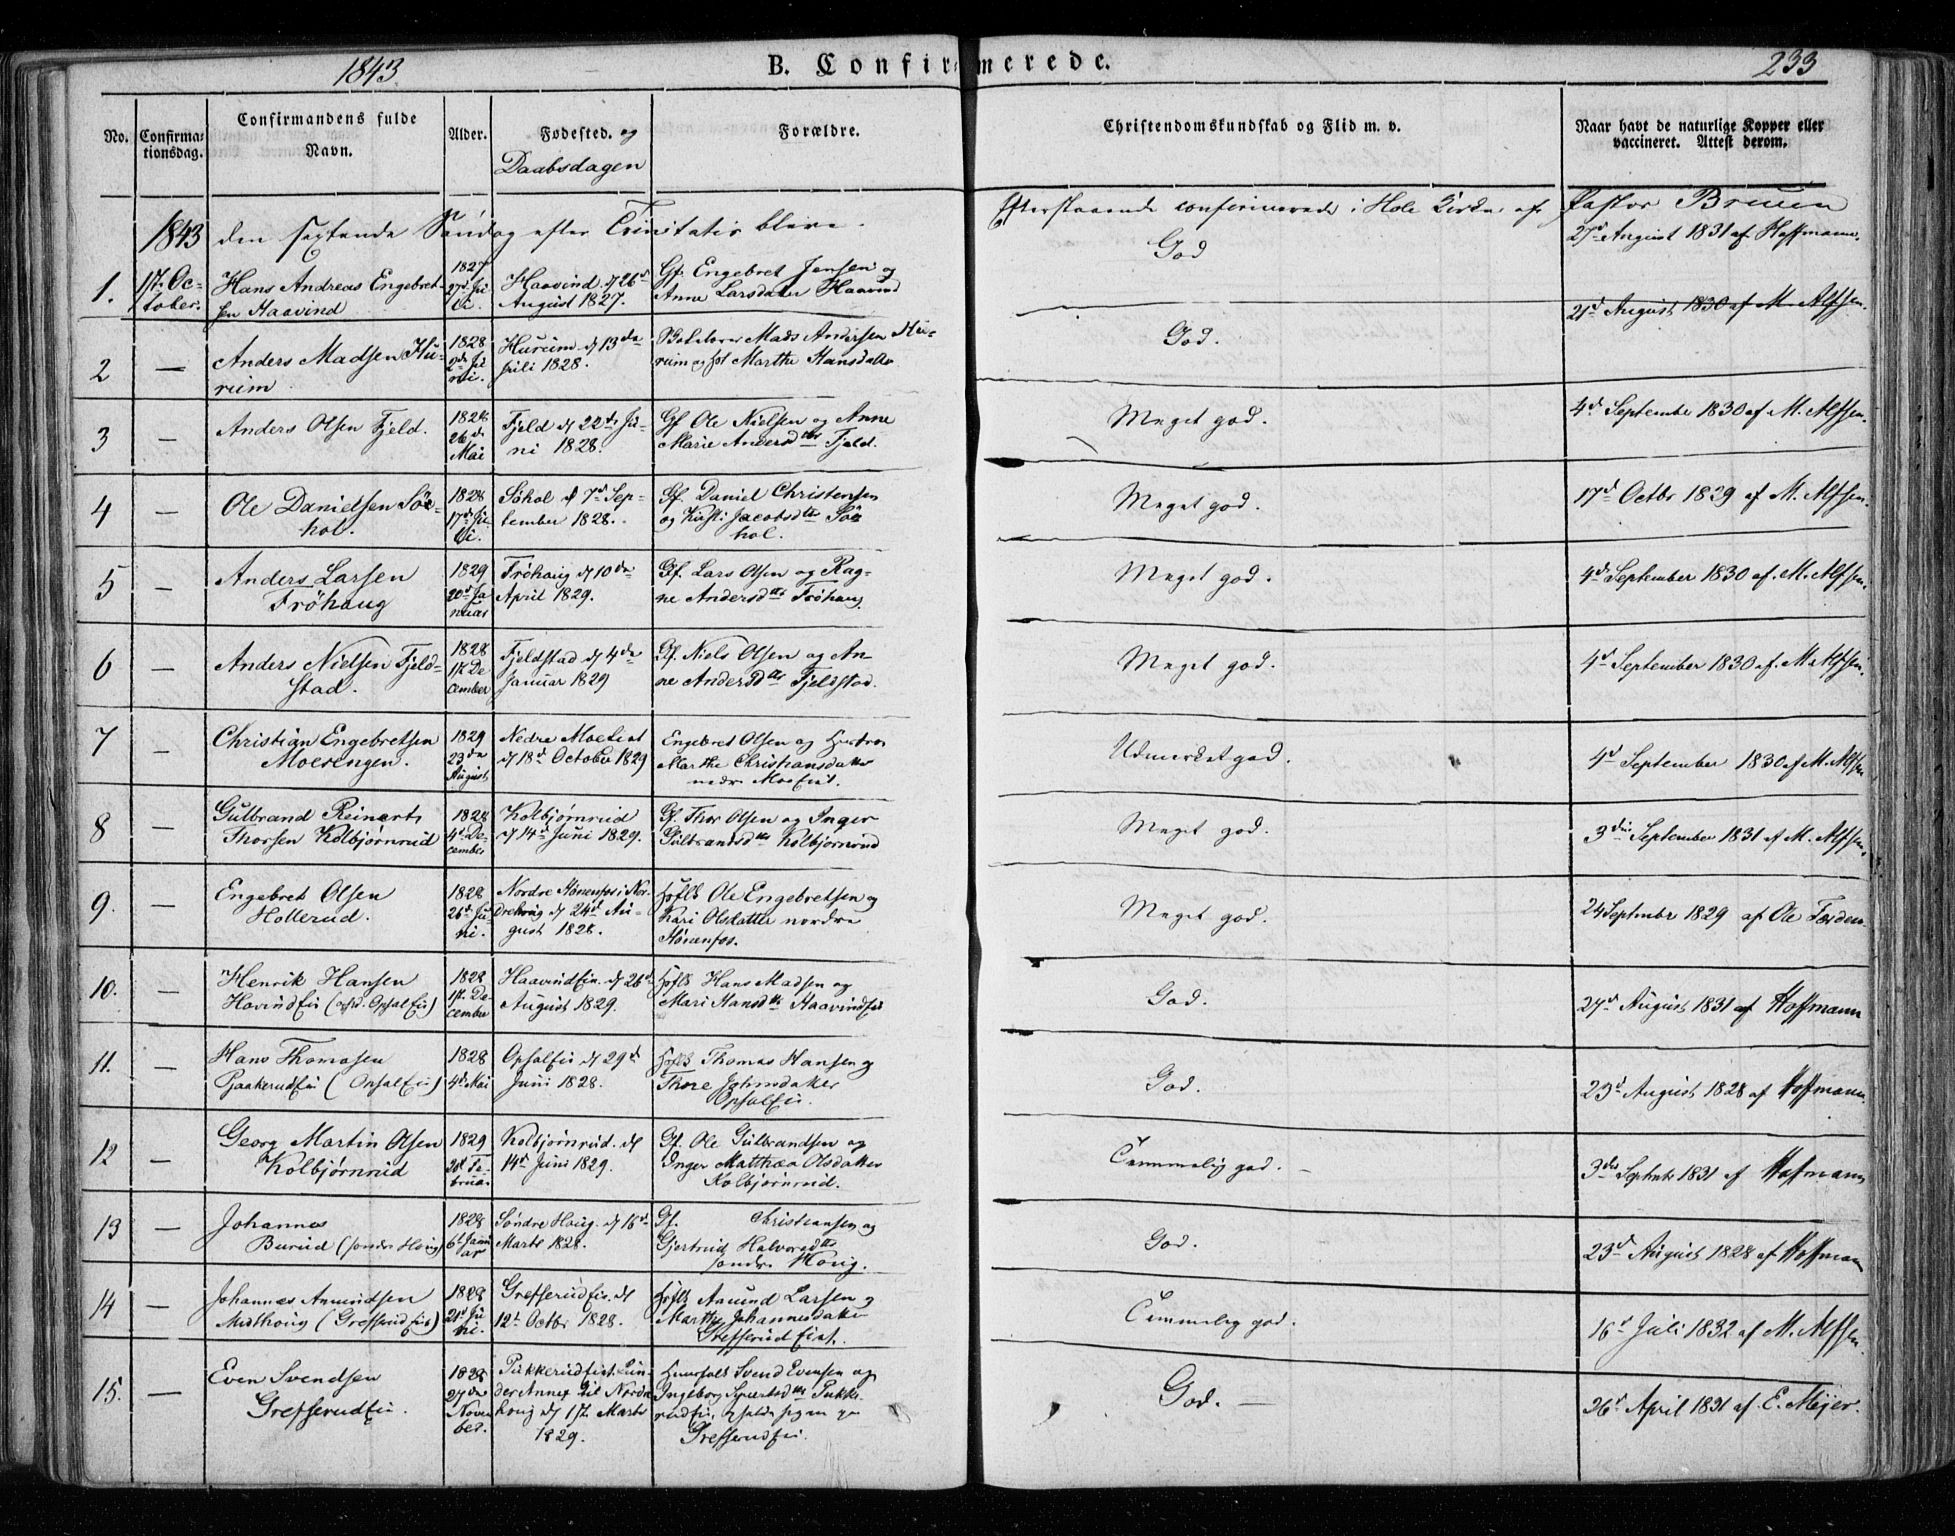 1843
B. Confirmerede.
233
No.
Confirma:
tionsdag.
Confirmandens fulde
Navn.
Alder.
Fødested. og
Daabsdagen
Forældre.
Christendomskundskab og Flid m. v.
Naar havt de naturlige Kopper eller
vaccineret. Attest derom.
1843 den sextende Søndag efter Trinitatis bleve efterstaaende confirmerede i Hole Kirke af Pastor Bruun
1.
17. Oc-
tober.
Hans Andreas Engebret-
sen Haavind
1827
27d Ju
li.
Haavind d 26d
August 1827.
Gf. Engebret Jensen og
Anne Larsdatter Haavind
God
27d August 1831 af Hoffmann.
2
—
Anders Madsen Hu-
rum
1828
2d Ju
ni.
Hurum d 13de
Juli 1828.
Mads Andersen Hu-
rum og Marthe Hansdatter
God.
21d August 1830 af M. Alfsen.
3
—
Anders Olsen Fjeld.
1828
26d
Mai
Fjeld d 22de Ju-
ni 1828.
Gf Ole Nielsen og Anne
Marie Andersdtr Fjeld.
Meget god.
4d September 1830 af M. Alfsen.
4
—
Ole Danielsen Søe
hol.
1828
17d Ju
li.
Søhol d 7d Sep-
tember 1828.
Gf. Daniel Christensen
og Kirsti Jacobsdtr Sö
hol.
Meget god.
17d Octbr 1829 af M. Alfsen.
5
—
Anders Larsen
Fröhaug
1829
20d Ja
nuar
Fröhaug d 10de
April 1829.
Gf. Lars Olsen og Rag-
ne Andersdtr Fröhaug
Meget god.
4de September 1830 af. M. Alfsen.
6
—
Anders Nielsen Fjeld-
stad.
1828
17. De
cember
Fjeldstad d 4de
Januar 1829
Gf. Niels Olsen og An-
ne Andersdtr Fjeldstad.
Meget god.
4d September 1830 af. M. Alfsen.
7
—
Christian Engebretsen
Moeengen.
1829
23de
August
Nedre Moeeiet
d 18d October 1829
Engebret Olsen og Hustroe
Marthe Christiansdatter
nedre Moeeiet.
Udmærket god.
4d September 1830 af M. Alfsen
8
—
Gulbrand Reinert
Thorsen Kolbjørnrud
1828
4d De-
cember
Kolbjørnrud
d 14d Juni 1829.
Gf. Thor Olsen og Inger
Gulbrandsdtr Kolbjørnrud
Meget god.
3die September 1831 af M. Alfsen.
9.
—
Engebret Olsen
Hollerud.
1828
26d Ju
ni.
Nordre Hönenfos i Nor-
drehoug d 24d Au-
gust 1828.
Hosflk Ole Engebretsen og
Kari Olsdatter nordre
Hönenfos.
Meget god.
24 Septembr 1829 af Ole Færden
10.
—
Henrik Hansen
Hovindeie (ved Opsaleie)
1828
17. De-
cember
Haavindeie d 26d
August 1829.
Hosflk Hans Madsen og
Mari Hansdtr Haavindeie
God.
27d August 1831 af Hoffmann
11.
—
Hans Thomasen
Gaakerudeie (Opsaleie)
1828
4d Mai
Opsaleie d 29d
Juni 1828.
Hosflk Thomas Hansen og
Thore Johnsdatter
Opsaleie.
God.
23d August 1828 af Hoffmann.
12
—
Georg Martin Olsen
Kolbjørnrud
1829
20d Fe-
bruar
Kolbjørnrud. d
14d Juni 1829.
Gf. Ole Gulbrandsen og
Inger Matthea Olsdatter
Kolbjørnrud.
Temmelig god. —
3die Septembr 1831 af Hofmann
13
—
Johannes
Burud (søndre Houg)
1828
6d Janu
ar
Søndre Houg. d 16d
Marts 1828.
Gf. Christiansen og
Gjertrud Halvorsdtr
søndre Houg.
God.
23d August 1828 af Hoffman
14
—
Johannes Amundsen
Midthoug (Grefserudeie)
1828
21d Ju
ni.
Grefserudeie. d
12t Octbr 1828.
Hosflk Amund Larsen og
Marthe Johannesdatter
Grefserud Eiet.
Temmelig god.
16d Juli 1832 af M. Alfsen.
15.
—
Even Svendsen
Grefserudeie.
1828
27de
Novem
ber.
Pukkerudeiet. Lun-
der Annex til Nordre
houg d 17. Marts
1829.
Huusfolk Svend Evensen og
Ingeborg Sjurdsdtr Pukke-
rudeie, opholde sig nu paa
Grefserudeie.
God. —
26d April 1831 af. E. Meyer.